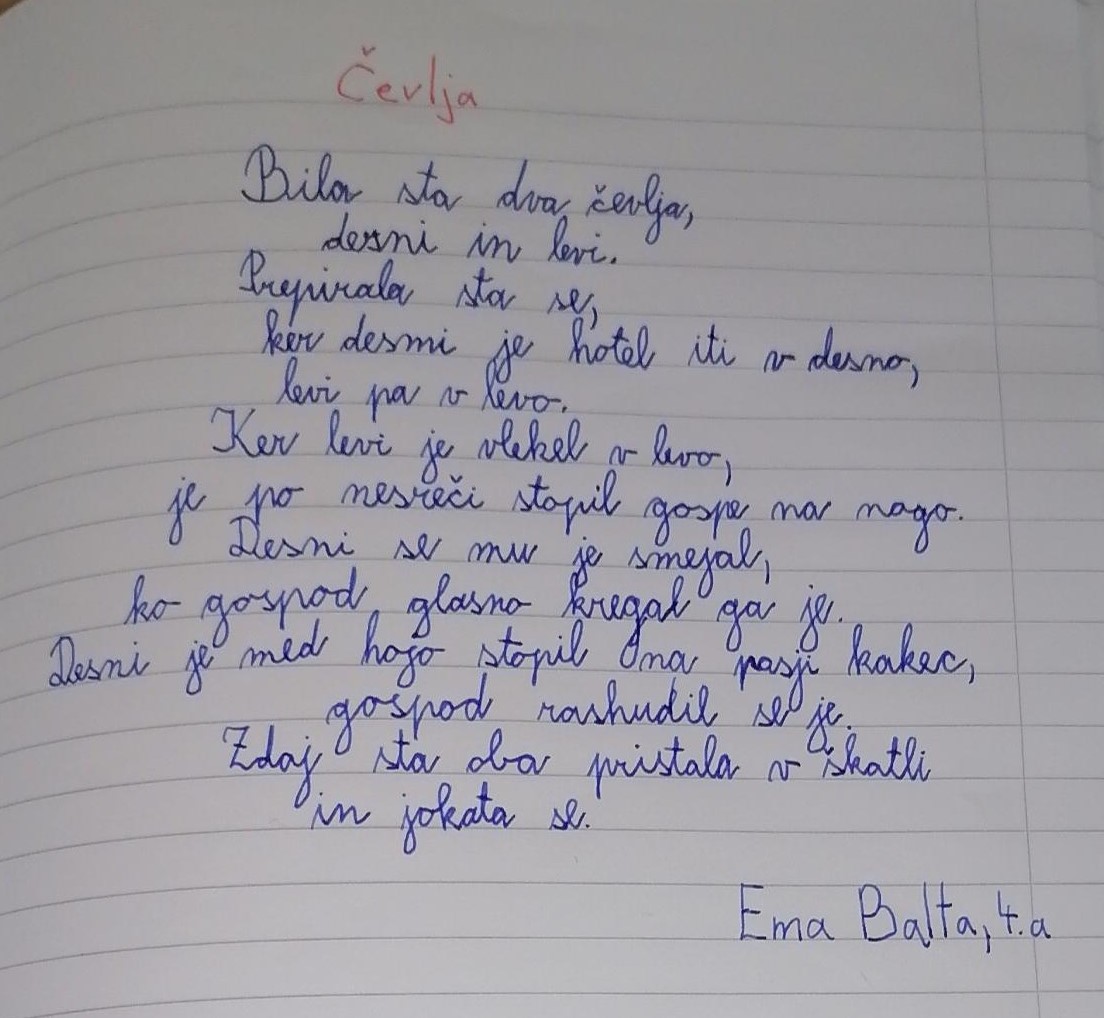 Čevlja
Bila sta dva čevlja,
desni in levi.
Prepirala sta se,
ker desni je hotel iti v desno,
levi pa v levo.
Ker levi je vlekel v levo,
je po nesreči stopil gospe na nogo.
Desni se mu je smejal,
ko gospod glasno kregal ga je.
Desni je med hojo stopil na pasji kakec,
gospod rashudil se je.
Zdaj sta oba pristala v škatli
in jokata se.
Ema Balta, 4. a